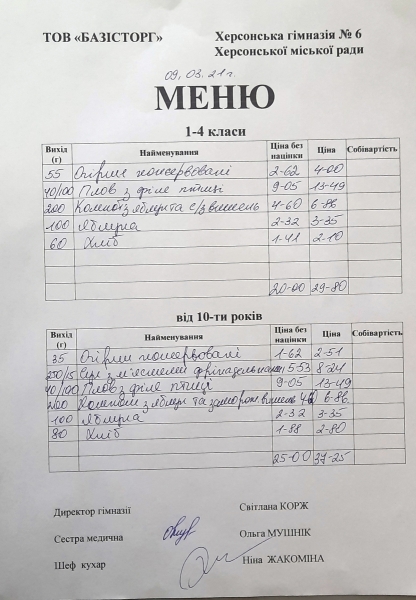 ТОВ «БАЗІСТОРГ» Херсонська гімназія № 6
Херсонської міської ради
09.03.21г.
МЕНЮ
1-4 класи
Вихід (г) Найменування Ціна без націнки Ціна Собівартість
55 Огірки консервовані 2-62 4-00
40/100 Плов з філе птиці 9-05 13-49
200 Компот з яблук та с/з вишень 4-60 6-86
100 Яблука 2-32 3-35
60 Хліб 1-41 2-10
20-00 29-80
від 10-ти років
Вихід (г) Найменування Ціна без націнки Ціна Собівартість
35 Огірки консервовані 1-62 2-51
250/15 з м'ясними фрикадельками 5-53 8-24
40/100 Плов з філе птиці 9-05 13-49
200 Компот з яблук та заморож. вишень 6-86
100 Яблука 2-32 3-35
80 Хліб 1-88 2-80
25-00 37-25
Директор гімназії Світлана КОРЖ
Сестра медична Ольга МУШНІК
Шеф кухар Ніна ЖАКОМІНА